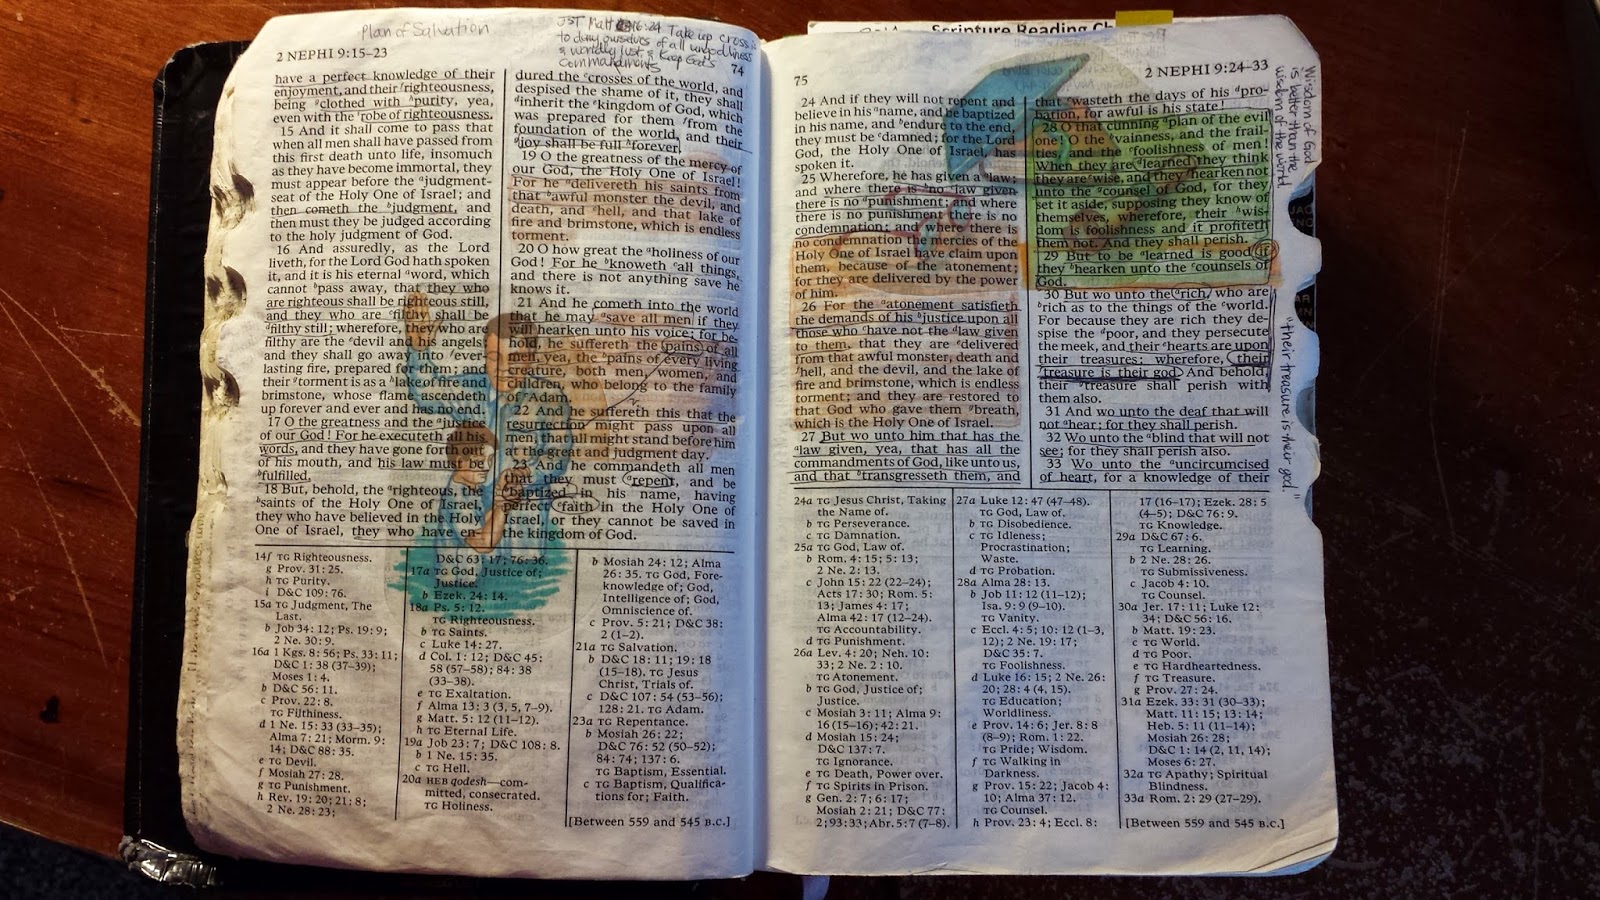 Plan of Salvation
JST Matt 16:24 Take up cross is
to deny ourselves of all ungodliness
& worldly lust & keep God's
commandments
2 NEPHI 9:15–23
74
have a perfect knowledge of their
enjoyment, and their righteousness,
being clothed with purity, yea,
even with the robe of righteousness.
15 And it shall come to pass that
when all men shall have passed from
this first death unto life, insomuch
as they have become immortal, they
must appear before the judgment-
seat of the Holy One of Israel; and
then cometh the judgment, and
then must they be judged according
to the holy judgment of God.
16 And assuredly, as the Lord
liveth, for the Lord God hath spoken
it, and it is his eternal word, which
cannot pass away, that they who
are righteous shall be righteous still,
and they who are filthy shall be
filthy still; wherefore, they who are
filthy are the devil and his angels;
and they shall go away into ever-
lasting fire, prepared for them; and
their torment is as a lake of fire and
brimstone, whose flame ascendeth
up forever and ever and has no end.
17 O the greatness and the justice
of our God! For he executeth all his
words, and they have gone forth out
of his mouth, and his law must be
fulfilled.
18 But, behold, the righteous, the
saints of the Holy One of Israel,
they who have believed in the Holy
One of Israel, they who have en-
dured the crosses of the world, and
despised the shame of it, they shall
inherit the kingdom of God, which
was prepared for them from the
foundation of the world, and their
joy shall be full forever.
19 O the greatness of the mercy of
our God, the Holy One of Israel!
For he delivereth his saints from
that awful monster the devil, and
death, and hell, and that lake of
fire and brimstone, which is endless
torment.
20 O how great the holiness of our
God! For he knoweth all things,
and there is not anything save he
knows it.
21 And he cometh into the world
that he may save all men if they
will hearken unto his voice; for be-
hold, he suffereth the pains of all
men, yea, the pains of every living
creature, both men, women, and
children, who belong to the family
of Adam.
22 And he suffereth this that the
resurrection might pass upon all
men, that all might stand before him
at the great and judgment day.
23 And he commandeth all men
that they must repent, and be
baptized in his name, having
perfect faith in the Holy One of
Israel, or they cannot be saved in
the kingdom of God.
14f TG Righteousness.
g Prov. 31: 25.
h TG Purity.
i D&C 109: 76.
15a TG Judgment, The
Last.
b Job 34: 12; Ps. 19: 9;
2 Ne. 30: 9.
16a 1 Kgs. 8: 56; Ps. 33: 11;
D&C 1: 38 (37–39);
Moses 1: 4.
b D&C 56: 11.
c Prov. 22: 8.
TG Filthiness.
d 1 Ne. 15: 33 (33–35);
Alma 7: 21; Morm. 9:
14; D&C 88: 35.
e TG Devil.
f Mosiah 27: 28.
g TG Punishment.
h Rev. 19: 20; 21: 8;
2 Ne. 28: 23;
D&C 63: 17; 76: 36.
17a TG God, Justice of;
Justice.
b Ezek. 24: 14.
18a Ps. 5: 12.
TG Righteousness.
b TG Saints.
c Luke 14: 27.
d Col. 1: 12; D&C 45:
58 (57–58); 84: 38
(33–38).
e TG Exaltation.
f Alma 13: 3 (3, 5, 7–9).
g Matt. 5: 12 (11–12).
h TG Eternal Life.
19a Job 23: 7; D&C 108: 8.
b 1 Ne. 15: 35.
c TG Hell.
20a HEB qodesh—com-
mitted, consecrated.
TG Holiness.
b Mosiah 24: 12; Alma
26: 35. TG God, Fore-
knowledge of; God,
Intelligence of; God,
Omniscience of.
c Prov. 5: 21; D&C 38:
2 (1–2).
21a TG Salvation.
b D&C 18: 11; 19: 18
(15–18). TG Jesus
Christ, Trials of.
c D&C 107: 54 (53–56);
128: 21. TG Adam.
23a TG Repentance.
b Mosiah 26: 22;
D&C 76: 52 (50–52);
84: 74; 137: 6.
TG Baptism, Essential.
c TG Baptism, Qualifica-
tions for; Faith.
[Between 559 and 545 B.C.]
Scripture Reading Ch
75
2 NEPHI 9:24–33
24 And if they will not repent and
believe in his name, and be baptized
in his name, and endure to the end,
they must be damned; for the Lord
God, the Holy One of Israel, has
spoken it.
25 Wherefore, he has given a law;
and where there is no law given
there is no punishment; and where
there is no punishment there is no
condemnation; and where there is
no condemnation the mercies of the
Holy One of Israel have claim upon
them, because of the atonement;
for they are delivered by the power
of him.
26 For the atonement satisfieth
the demands of his justice upon all
those who have not the law given
to them, that they are delivered
from that awful monster, death and
hell, and the devil, and the lake of
fire and brimstone, which is endless
torment; and they are restored to
that God who gave them breath,
which is the Holy One of Israel.
27 But wo unto him that has the
law given, yea, that has all the
commandments of God, like unto us,
and that transgresseth them, and
that wasteth the days of his pro-
bation, for awful is his state!
28 O that cunning plan of the evil
one! O the vainness, and the frail-
ties, and the foolishness of men!
When they are learned they think
they are wise, and they hearken not
unto the counsel of God, for they
set it aside, supposing they know of
themselves, wherefore, their wis-
dom is foolishness and it profiteth
them not. And they shall perish.
29 But to be learned is good if
they hearken unto the counsels of
God.
30 But wo unto the rich, who are
rich as to the things of the world.
For because they are rich they de-
spise the poor, and they persecute
the meek, and their hearts are upon
their treasures; wherefore, their
treasure is their god. And behold,
their treasure shall perish with
them also.
31 And wo unto the deaf that will
not hear; for they shall perish.
32 Wo unto the blind that will not
see; for they shall perish also.
33 Wo unto the uncircumcised
of heart, for a knowledge of their
Wisdom of God
is better than the
wisdom of the world
"their treasure is their god."
24a TG Jesus Christ, Taking
the Name of.
b TG Perseverance.
c TG Damnation.
25a TG God, Law of.
b Rom. 4: 15; 5: 13;
2 Ne. 2: 13.
c John 15: 22 (22–24);
Acts 17: 30; Rom. 5:
13; James 4: 17;
Alma 42: 17 (12–24).
TG Accountability.
d TG Punishment.
26a Lev. 4: 20; Neh. 10:
33; 2 Ne. 2: 10.
TG Atonement.
b TG God, Justice of;
Justice.
c Mosiah 3: 11; Alma 9:
16 (15–16); 42: 21.
d Mosiah 15: 24;
D&C 137: 7.
TG Ignorance.
e TG Death, Power over.
f TG Spirits in Prison.
g Gen. 2: 7; 6: 17;
Mosiah 2: 21; D&C 77:
2; 93: 33; Abr. 5: 7 (7–8).
27a Luke 12: 47 (47–48).
TG God, Law of.
b TG Disobedience.
c TG Idleness;
Procrastination;
Waste.
d TG Probation.
28a Alma 28: 13.
b Job 11: 12 (11–12);
Isa. 9: 9 (9–10).
TG Vanity.
c Eccl. 4: 5; 10: 12 (1–3,
12); 2 Ne. 19: 17;
D&C 35: 7.
TG Foolishness.
d Luke 16: 15; 2 Ne. 26:
20; 28: 4 (4, 15).
TG Education;
Worldliness.
e Prov. 14: 6; Jer. 8: 8
(8–9); Rom. 1: 22.
TG Pride; Wisdom.
f TG Walking in
Darkness.
g Prov. 15: 22; Jacob 4:
10; Alma 37: 12.
TG Counsel.
h Prov. 23: 4; Eccl. 8:
17 (16–17); Ezek. 28: 5
(4–5); D&C 76: 9.
TG Knowledge.
29a D&C 67: 6.
TG Learning.
b 2 Ne. 28: 26.
TG Submissiveness.
c Jacob 4: 10.
TG Counsel.
30a Jer. 17: 11; Luke 12:
34; D&C 56: 16.
b Matt. 19: 23.
c TG World.
d TG Poor.
e TG Hardheartedness.
f TG Treasure.
g Prov. 27: 24.
31a Ezek. 33: 31 (30–33);
Matt. 11: 15; 13: 14;
Heb. 5: 11 (11–14);
Mosiah 26: 28;
D&C 1: 14 (2, 11, 14);
Moses 6: 27.
32a TG Apathy; Spiritual
Blindness.
33a Rom. 2: 29 (27–29).
[Between 559 and 545 B.C.]